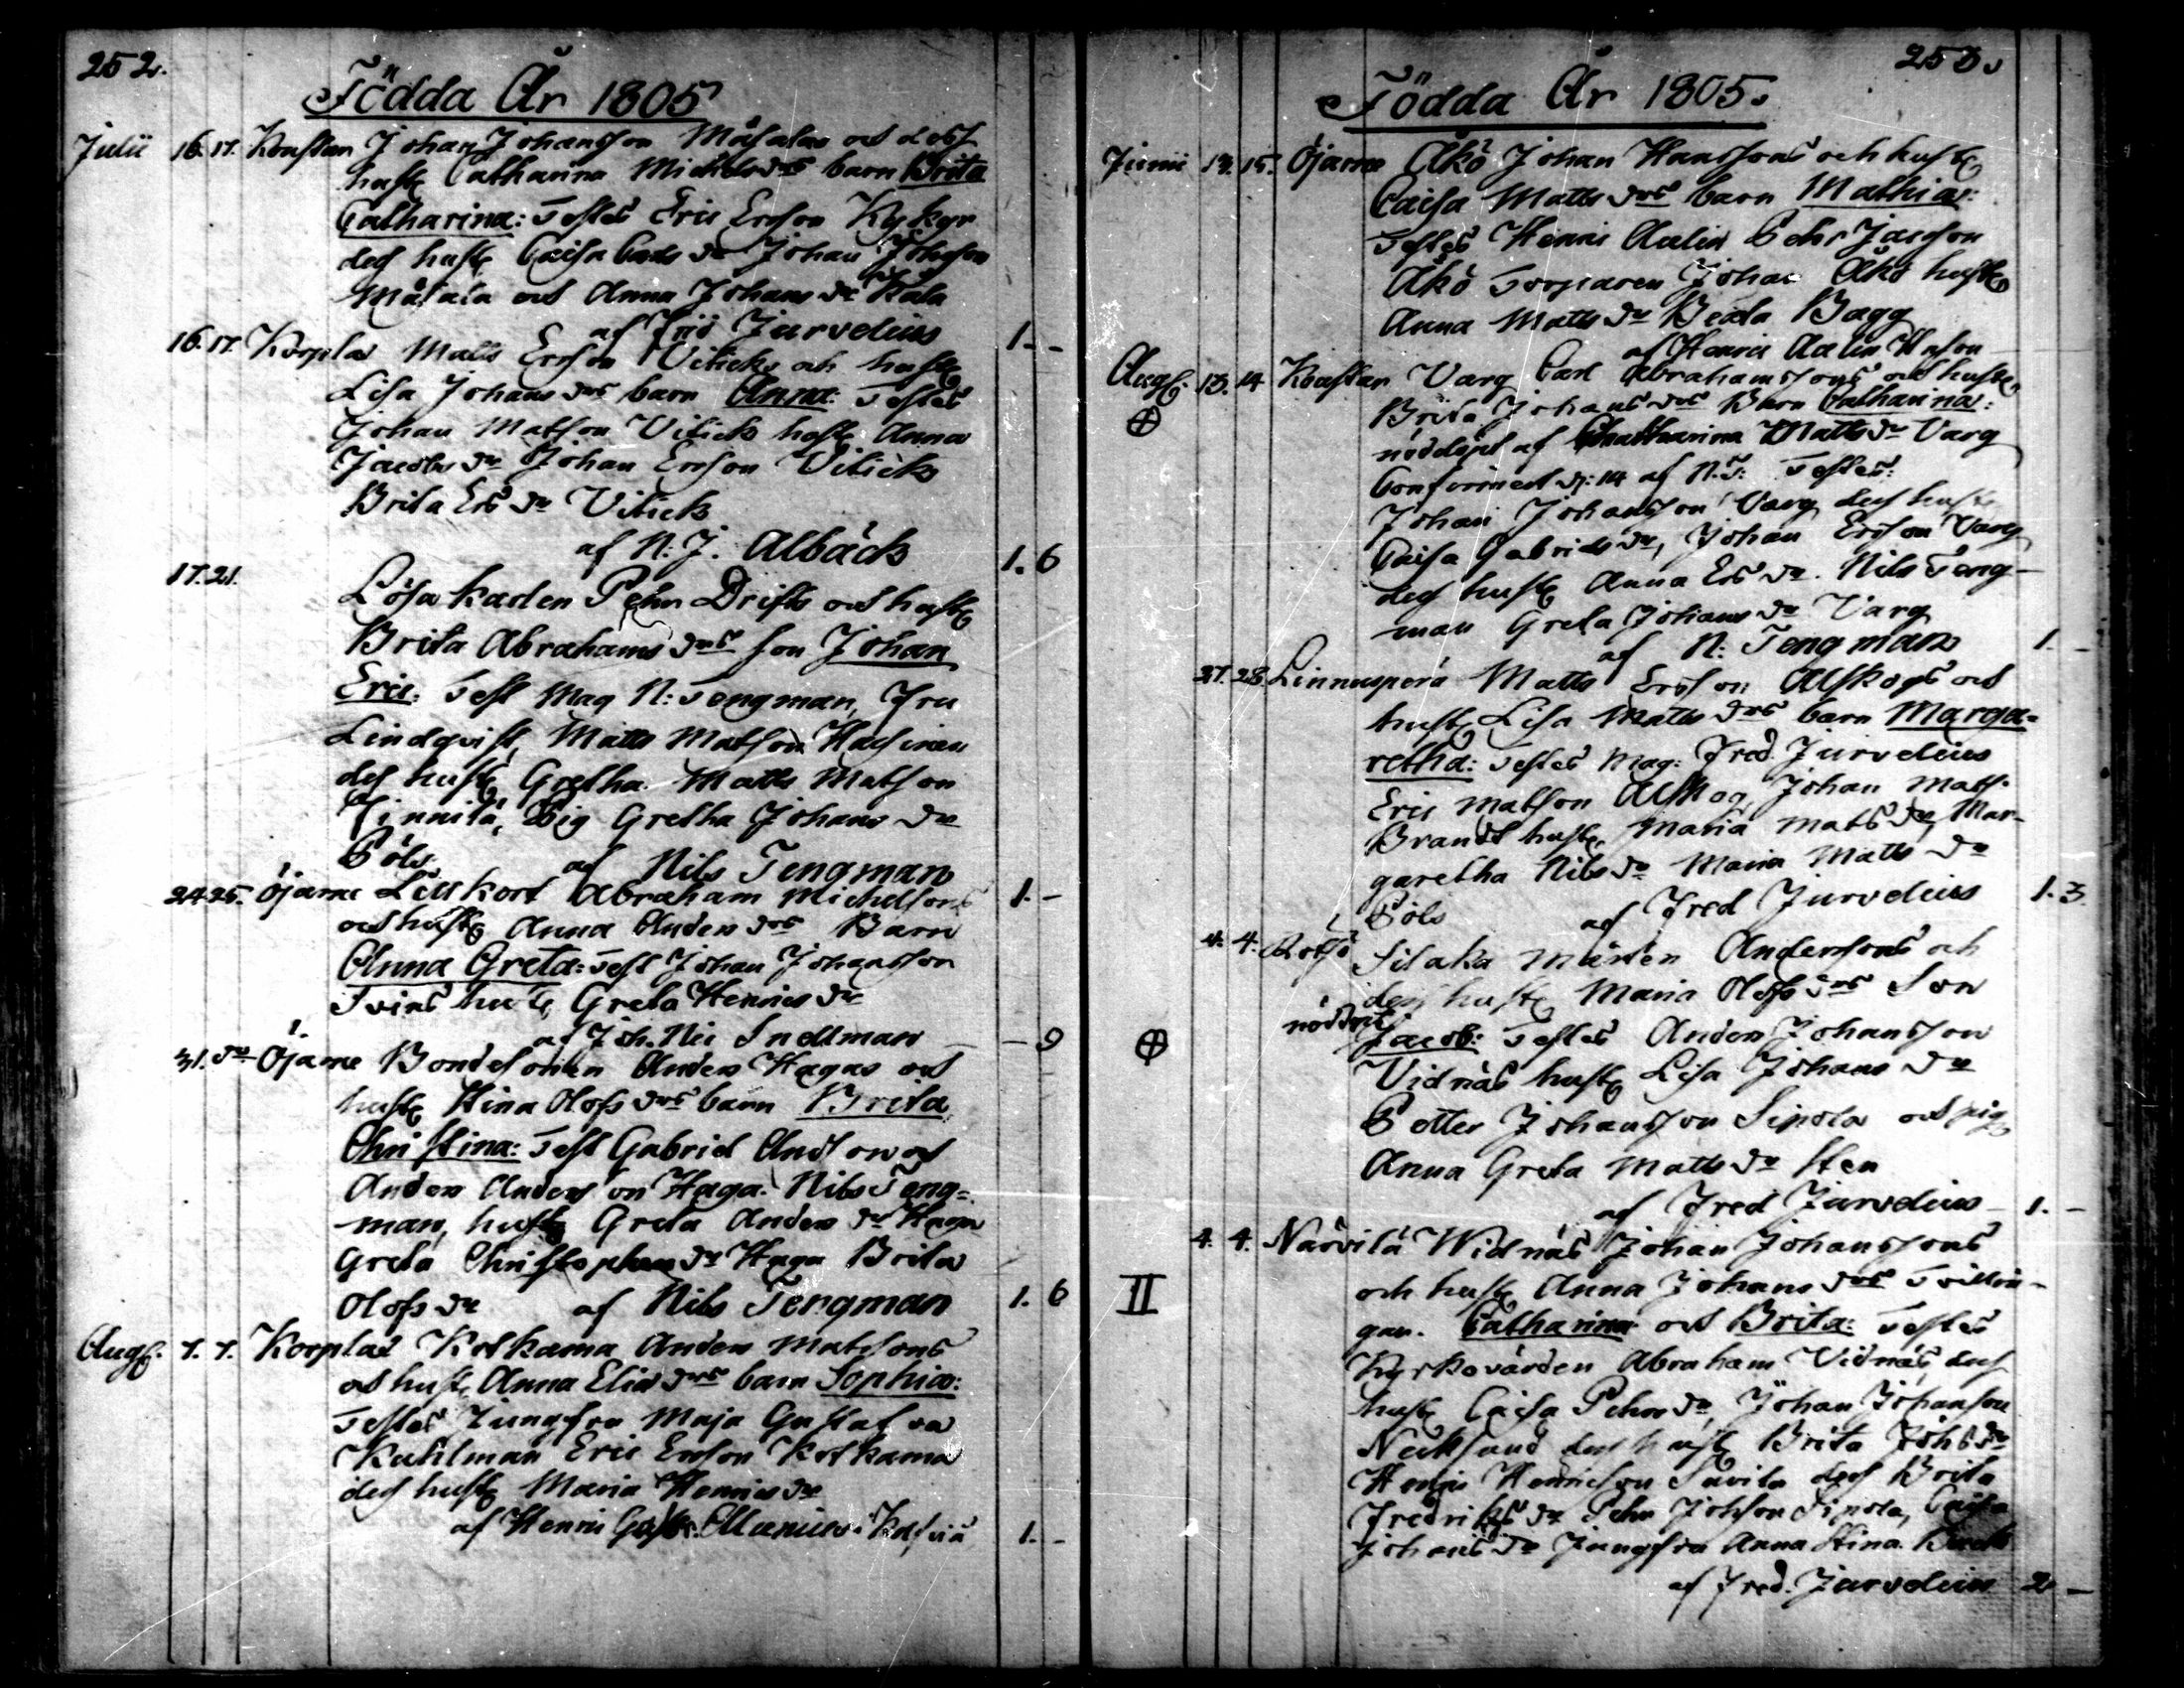 252.
Födda År 1805
Julii 16. 17. Johan Johansson och dess
hust. Catharina Michelsdrs barn Brita
Catharina: Testes Eric Ersson Kykyr
des hust. Caisa dr Johan
och Anna Johans dr
af Jurvelius 1. -
16. 17. Matts Ersson Vitick och hust.
Lisa Johans drs barn Anna: Testes
Johan Matsson Vitick hust. Anna
Jacobs dr Johan Ersson Vitick
Brita Ers dr Vitick
af N. J. Albäck 1. 6
17. 21.
Lösa karlen Pehr Drifts och hust.
Brita Abrahams drs son Johan
Eric: Test Mag N: Tengman, Fru
Lindqvist, Matts Matsson
des hust. Gretha. Matts Matson
Pig Gretha Johans dr
Pöls. af Nils Tengman 1. -
24 25. Öjame Abraham Michelsons
och hust. Anna Anders drs Barn
Anna Greta: Test Johan Johansson
hust. Greta Henrics dr
af Joh. Nic Snellman - 9
31. dr Öjame Bondesonen Anders Hagas och
hust. Stina Olofs drs barn Brita
Christina: Test Gabriel
Anders Andersson Haga. Nils Teng=
man, hust. Greta Anders dr Haga
Greta Christophers dr Haga Brita
Olofs dr af Nils Tengman 1. 6
Aug. 7. 7. Korplax Kotkama Anders Matssons
och hust. Anna Elias drs barn Sophia:
Testes Jungfru Maja Gustafva
Kahlman Eric Ersson Kotkama
des hust. Maria Henrics dr
af Henric 1. -
253.
Födda År 1805.
Junii 13. 15. Öjame Åkö Johan Hanssons och hust.
Caisa Matts drs barn Mathias:
Testes Henric Aelin Pehr
Åkö Torparen Johan Åkö hust.
Anna Matts dr Beata Bagg
af Henric Aelin
Aug. 13. 14 Varg Carl Abrahamssons och hust.
Brita Johans drs Barn Catharina:
nöddöpt af Catharina Matts dr Varg
Confirmed d: 14 af N. T: Testes:
Johan Johansson Varg des hust.
Caisa Gabriels dr, Johan Ersson Varg
des hust. Anna Ers dr. Nils Teng-
man Greta Johans dr Varg
af N: Tengman 1. -
27. 28. Linnusperä Matts Ersson Alskogs och
hust. Lisa Matts drs barn Marga=
retha: Testes Mag: Fred. Jurvelius
Eric Matsson Alskog Johan Matss.
Brandt hust. Maria Mats dr, Mar-
garetha Nils dr Maria Matts dr
Pöls af Fred Jurvelius 1. 3.
4. 4. Silaka Mårten Anderssons och
dess hust. Maria Olofs drs Son
nöddöpt Jacob: Testes Anders Johansson
Vidnäs hust. Lisa Johans dr
Petter Johansson Sipola och pig.
Anna Greta Matts dr Sten
af Fred Jurvelius 1. -
4. 4. Närvilä Widnäs Johan Johanssons
II och hust. Anna Johans drs Tvillin-
gar. Catharina och Brita: Testes
Kyrkovärden Abraham Vidnäs des
hust. Caisa Pehrs dr, Johan Johansson
des hust. Brita Johs dr
Henric Henricsson Savila des Brita
Fredriks dr Pehr Johsson Sipola, Caisa
Johans dr Jungfru Anna Stina
af Fred. Jurvelius 2 -